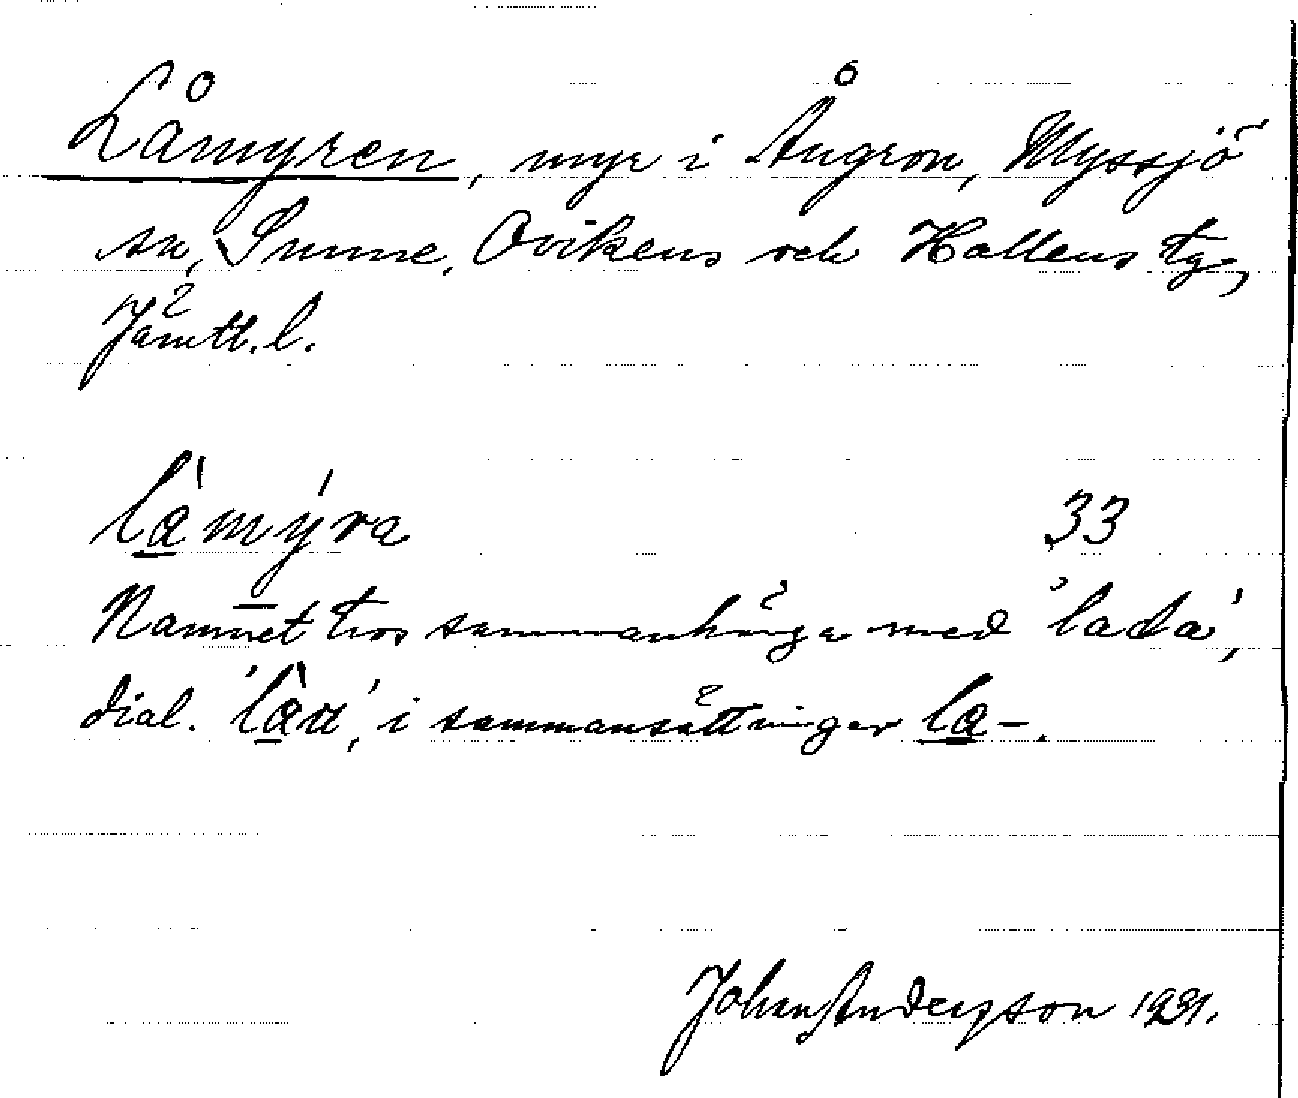 Låmyren, myr i Ångron, Myssjö
sn, Sunne, Ovikens och Hallens tg,
Jämtl. l.
la̱̍mýra 33
Namnet tros sammanhänga med 'lada',
dial. 'la̱̍u', i sammansättningar la̱-.
Johan Andersson 1931.